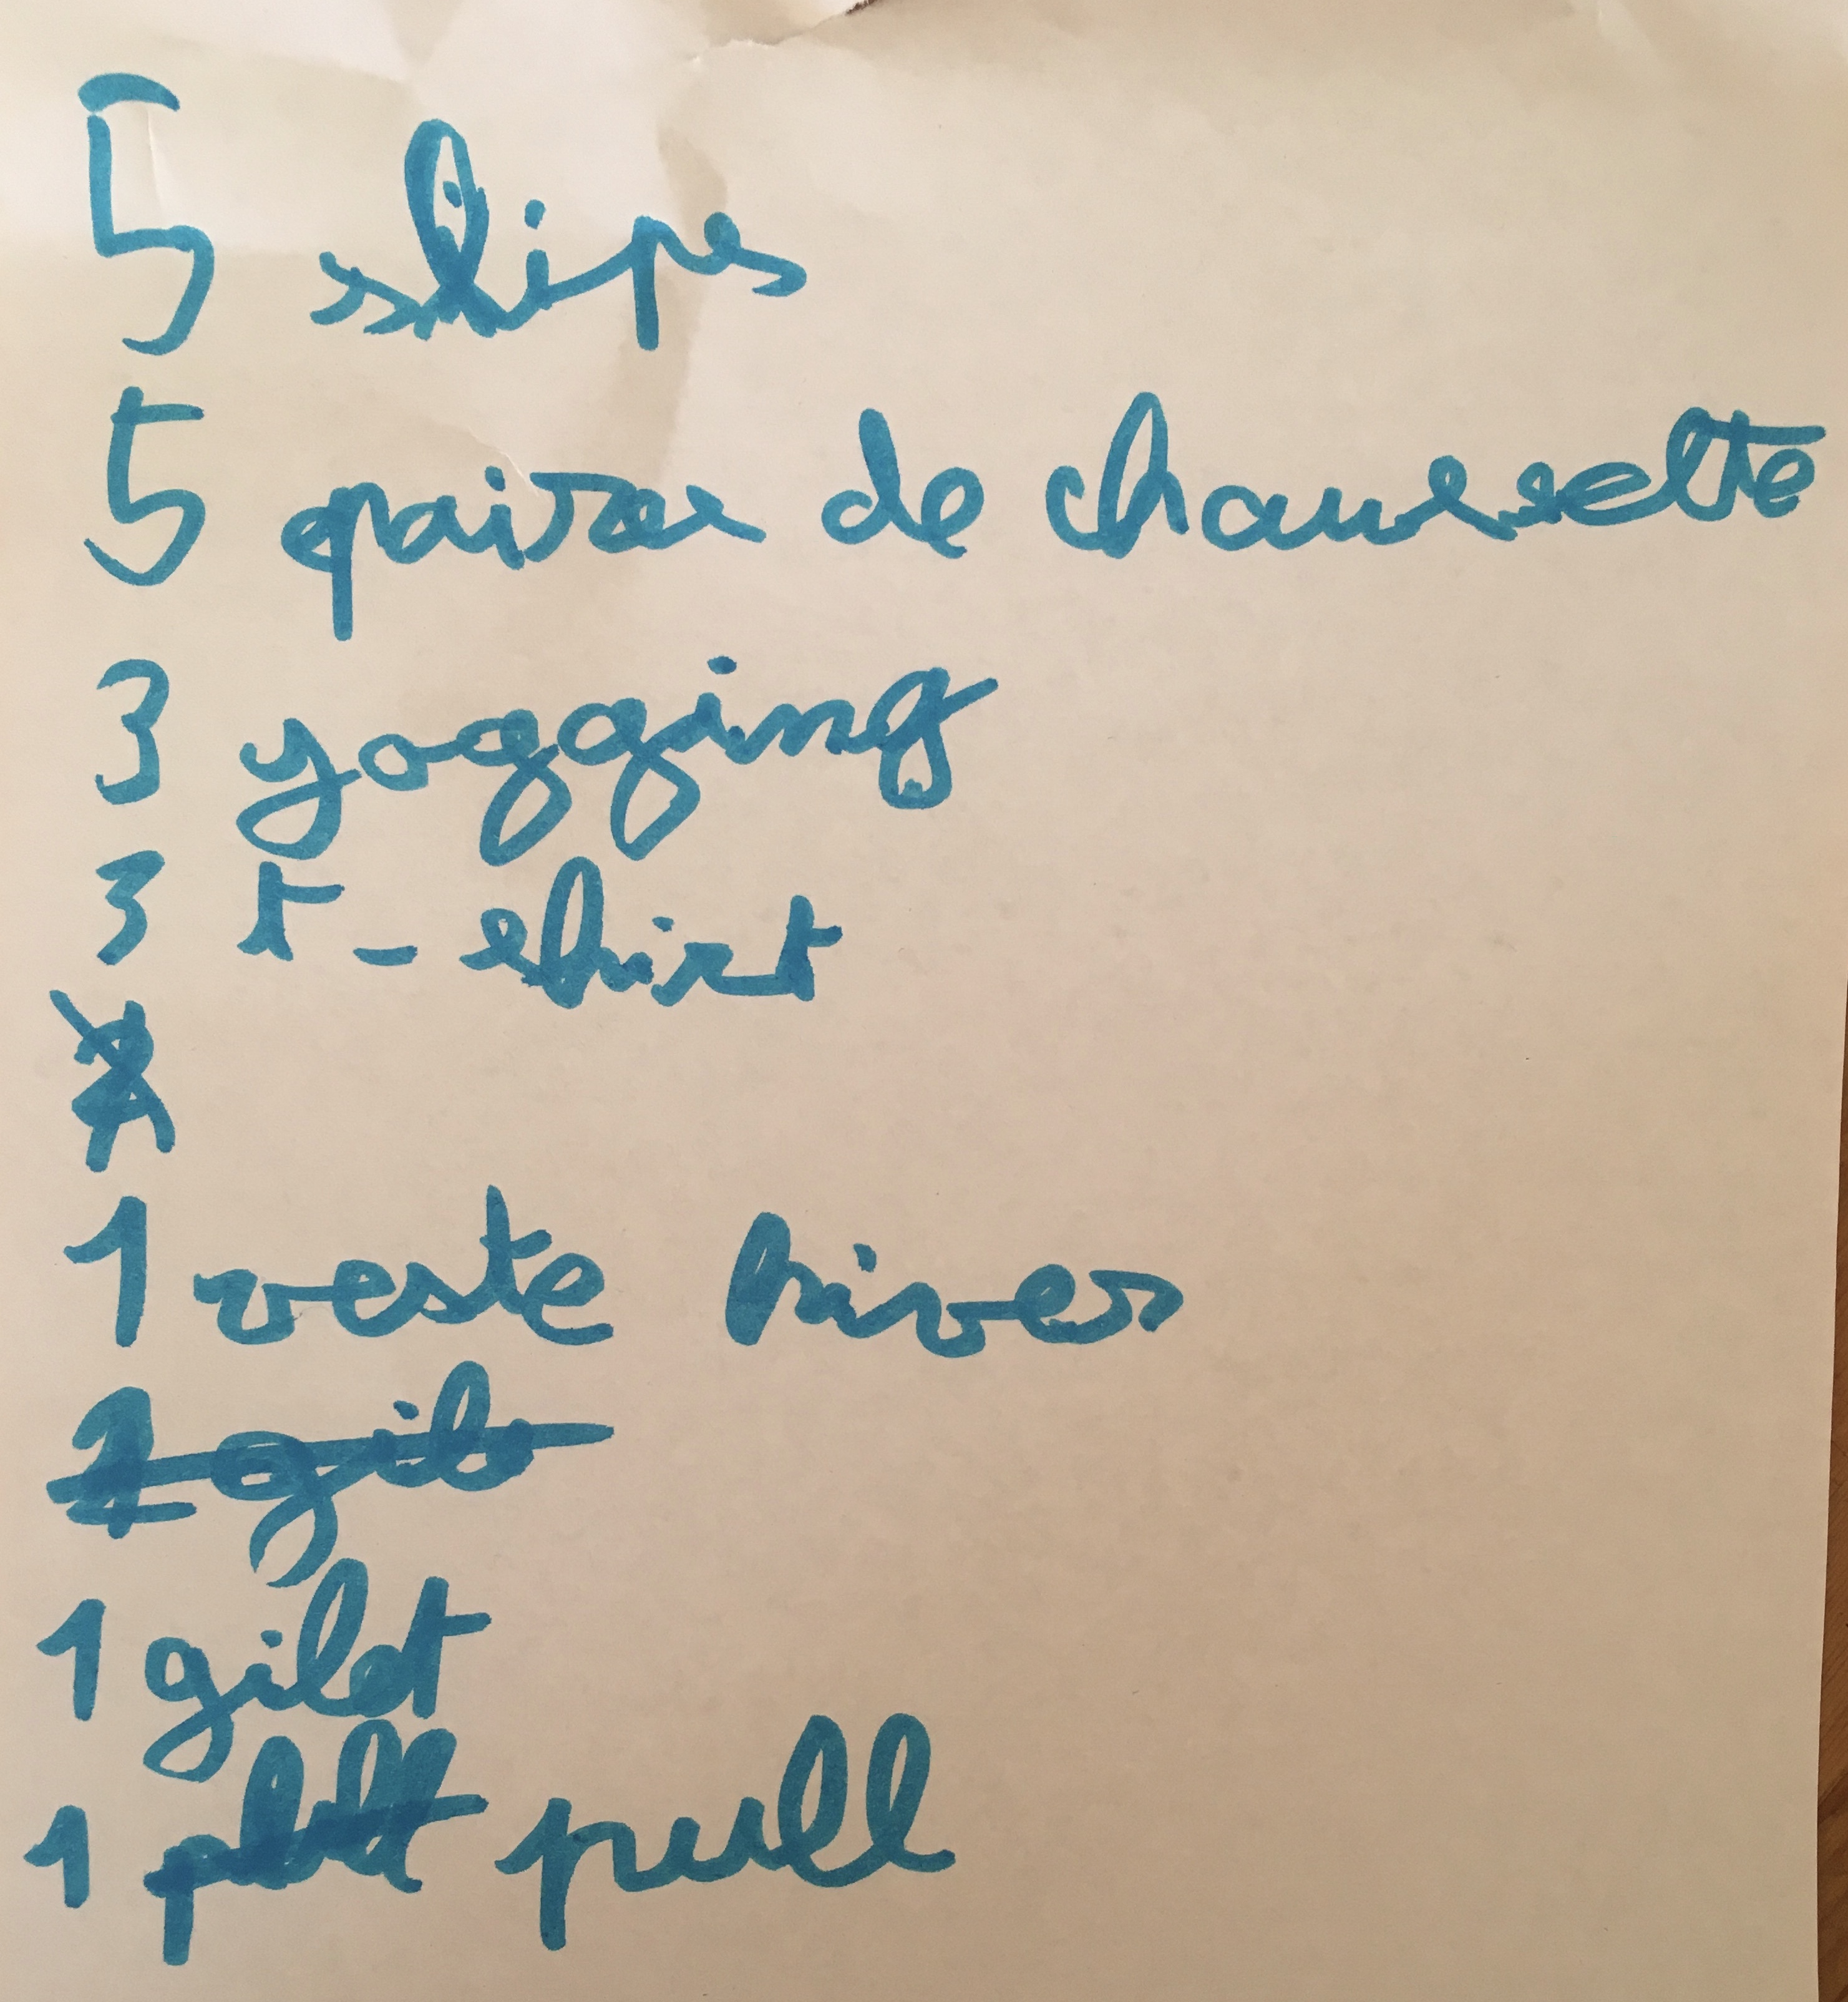 5 slips
5 paires de chaussette
3 yogging
3 T-shirt
1 veste hiver
1 gilet
1 pull